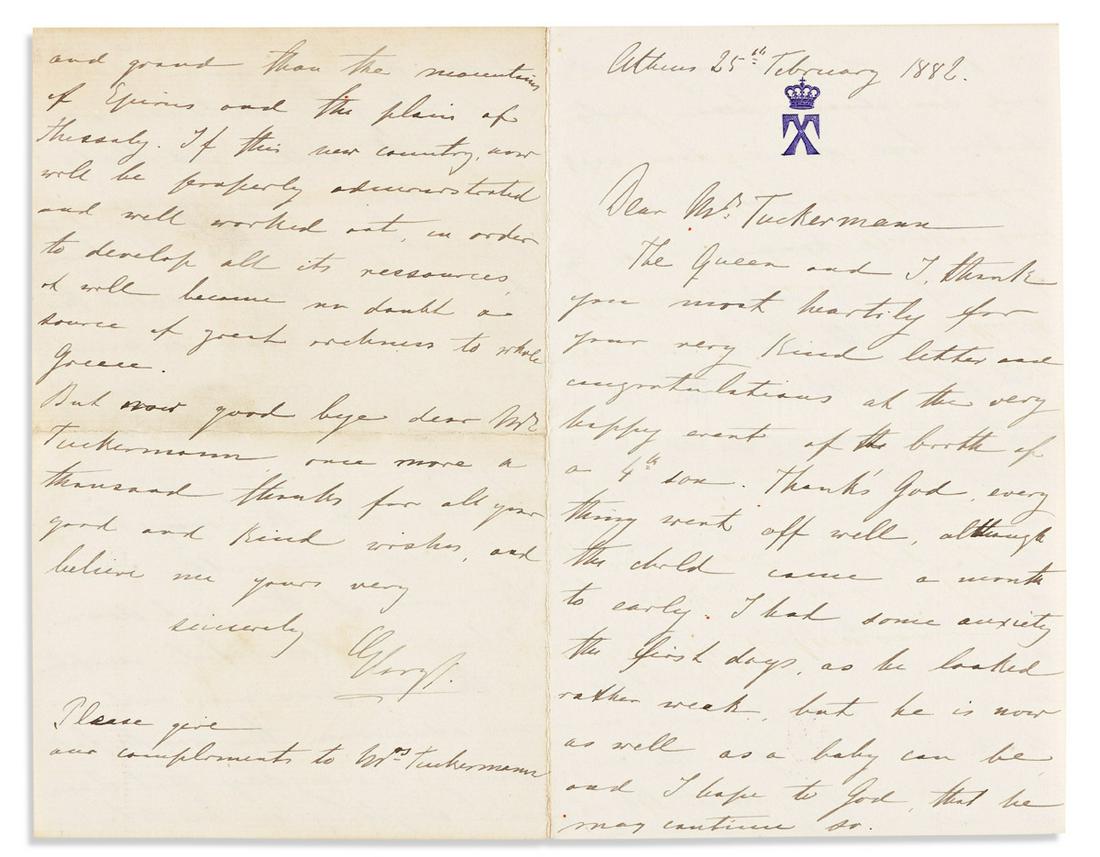 Athens 25th February 1882.
Dear Mr. Tuckermann
The Queen and I, thank
you most heartily for
your very kind letter and
congratulations at the very
happy event of the birth of
a 4th son. Thank's God, every
thing went off well, although
the child came a month
to early. I had some anxiety
the first days, as he looked
rather weak, but he is now
as well as a baby can be
and I hope to God, that he
may continue so.
and grand than the mountains
of Epirus and the plain of
Thessaly. If this new country, now
will be properly administrated
and well worked out, in order
to develop all its ressources,
it will become no doubt a
source of great richness to whole
Greece.
But now good bye dear Mr
Tuckermann, once more a
thousand thanks for all your
good and kind wishes, and
believe me yours very
sincerely
George.
Please give
our compliments to Mrs Tuckermann